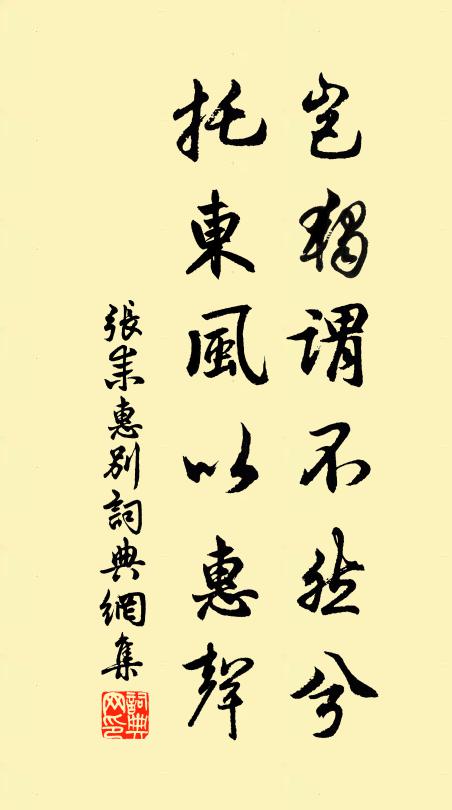 豈獨謂不然兮
托東風以惠聲
張耒惠別詞典網集
詞典网印